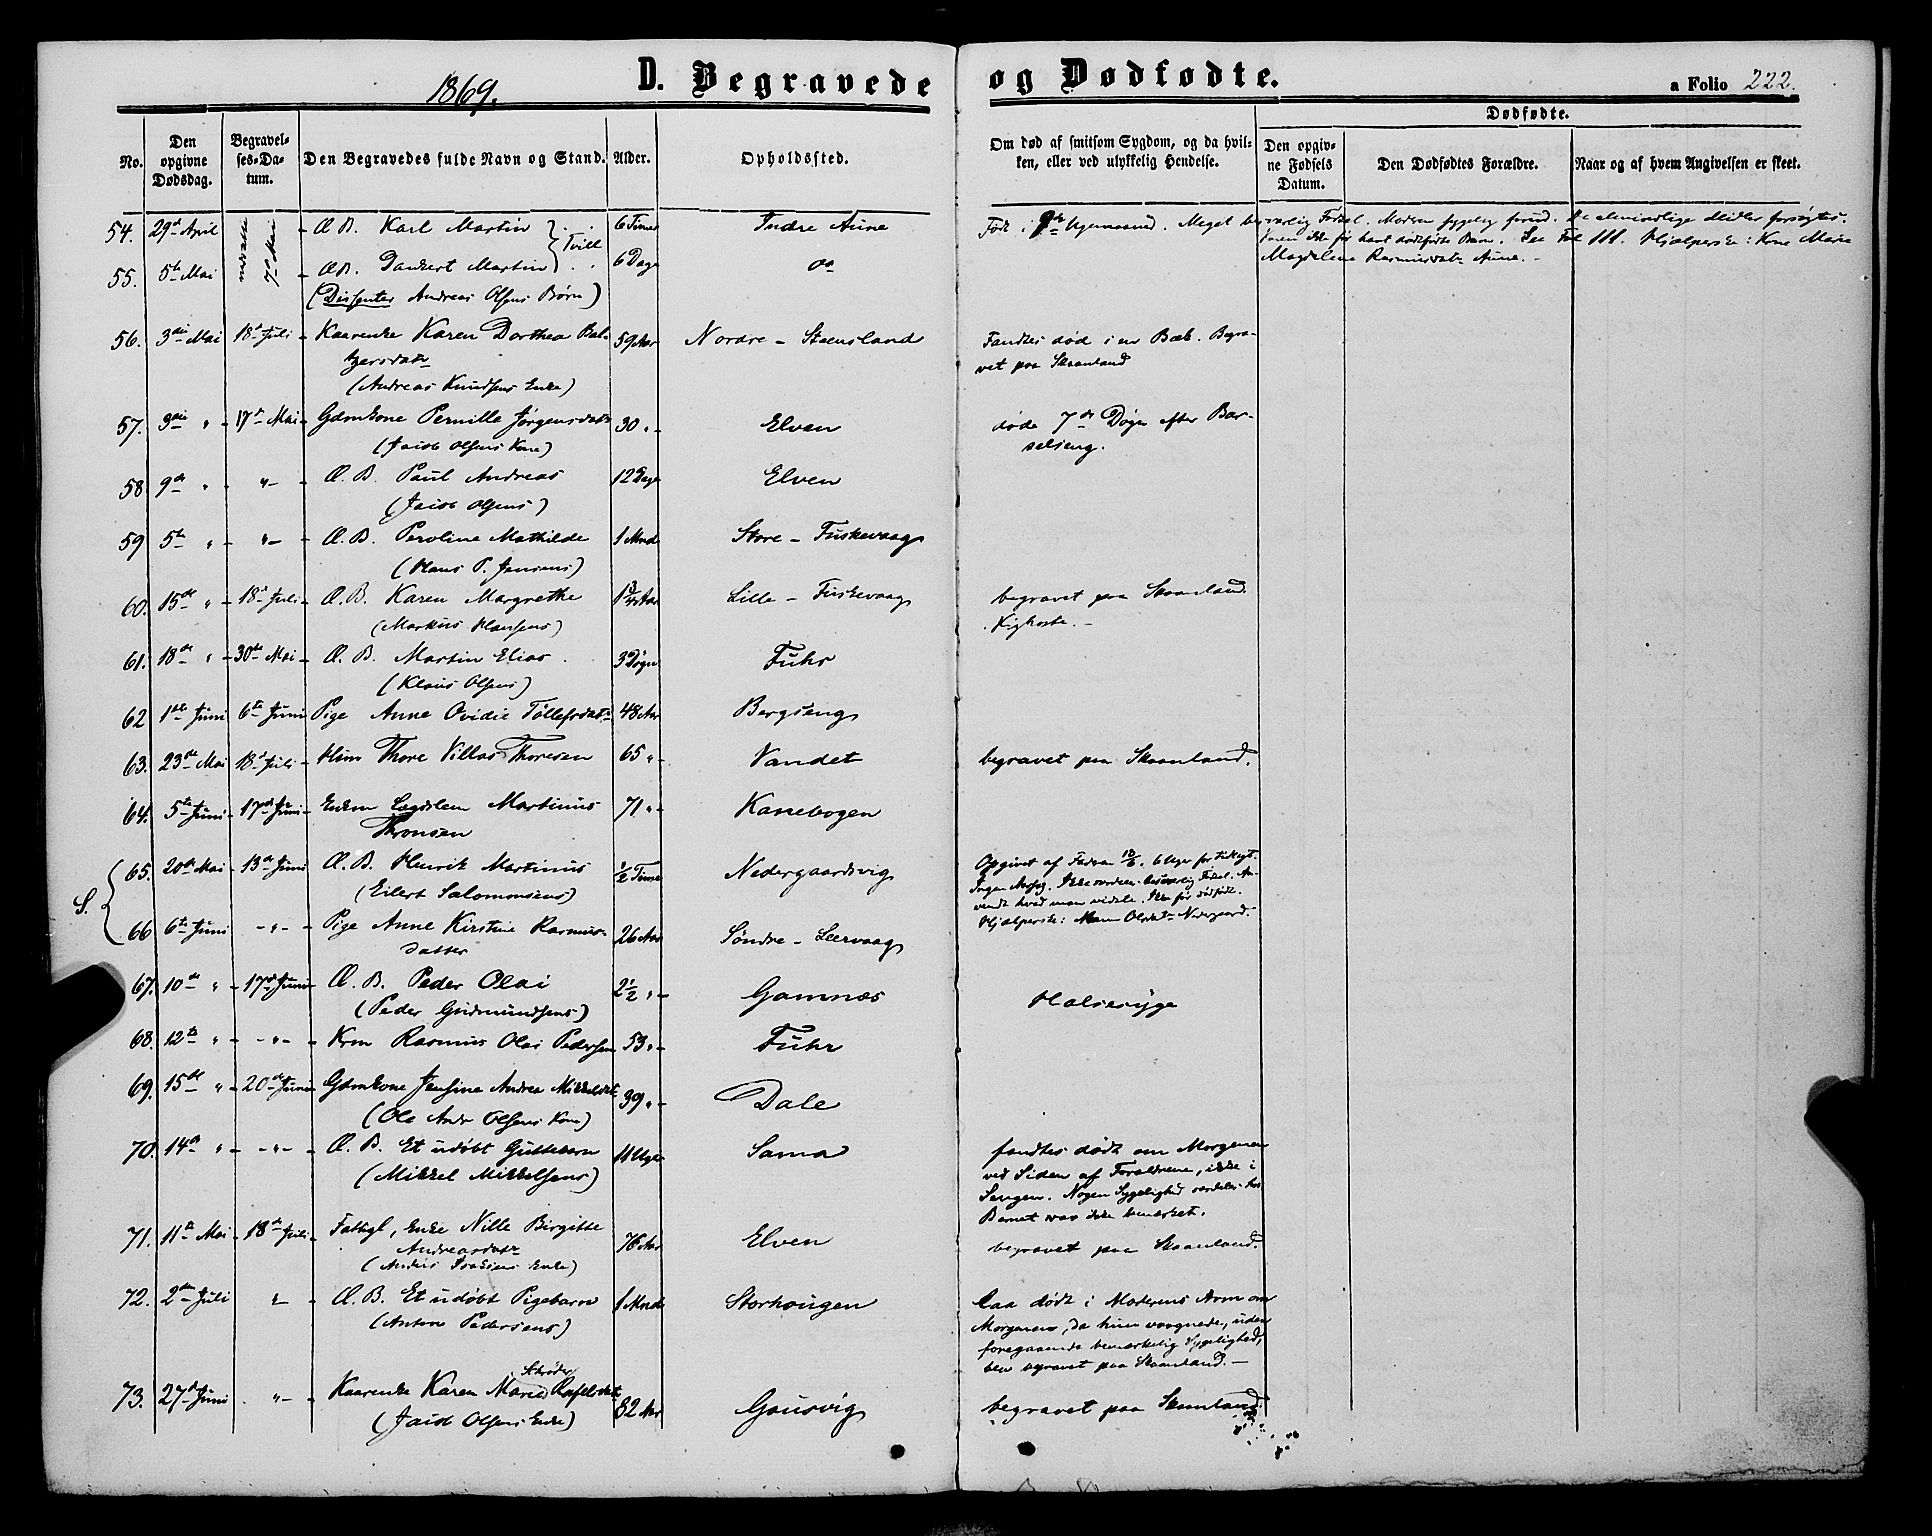 1869.
D. Begravede og Dødfødte.
a Folio 222.
No.
Den opgivne Dødsdag.
Begravelses-Datum.
Den Begravedes fulde Navn og Stand.
Alder.
Opholdssted.
Om død af smitsom Sygdom, og da hvilken, eller ved ulykkelig Hendelse.
Dødfødte.
Den opgivne Fødsels Datum.
Den Dødfødtes Forældre.
Naar og af hvem Angivelsen er skeet.
54. 29de April 7de Mai - Æ. B. Karl Martin } Tvill 6 Timer Indre Aune Født i 9de Ugemaaned. Meget besværlig Fødsel. Moderen sygelig forud. De almindlige Midler forsøgtes.
Hjælperske: Kone Marie
55. 5te Mai - Æ. B. Dankert Martin 6 Dage do Magdalena Rasmusdatr Aune. -
(Dissenter Andreas Olsens Børn)
56. 3die Mai 18de Juli - Kaarenke Karen Dorthea Bal- 59 Aar Nordre - Steensland Fandtes død i en Bæk. Begra-
tzersdatr vet paa Skaanland
(Andreas Knudsens Enke)
57. 3die " - 17de Mai - Gdmkone Pernille Jørgensdatr 30 " - Elven døde 7de Døgn efter Bar-
(Jacob Olsens Kone) selseng.
58 9de " - " - Æ. B. Paul Andreas 12 Dage Elven
(Jacob Olsens)
59 5te " - " - Æ. B. Peroline Mathilde 1 Mnd Store - Fuskevaag
(Hans P. Jensens)
60. 15de " - 18de Juli - Æ. B. Karen Margrethe 1 3/4 Aar Lille - Fuskevaag begravet paa Skaanland.
(Markus Hansens) Kighoste. -
61. 18de " - 30te Mai - Æ. B. Martin Elias 3 Døgn Fuhr
(Klaus Olsens)
62 1ste Juni 6te Juni Pige Anne Ovidie Tollefsdatr 48 Aar Bergseng
63. 23de Mai 18de Juli - Hmm Thore Villas Thoresen 65 " - Vandet begravet paa Skaanland.
64. 5te Juni - 17de Juni - Enkm Lægdslem Martinus 71 " - Kanebogen
Thronsen
S. {
65. 20de Mai - 13de Juni Æ. B. Henrik Martinus 1/2 Time Nedergaardsvig Opgivet af Faderen 13/6. 6 Uger for tidligt.
(Eilert Salomonsens) Ikke besværlig Fødsel. An-
vendt hvad man vidste. Ikke før dødfødt.
66 6te Juni - " - Pige Anne Kirstine Rasmus- 26 Aar Søndre - Leervaag Hjælperske: Nedergaard.
datter
67. 10de " - 17de Juni - Æ. B. Peder Olai 2 1/2 " - Gamnæs Halsesyge
(Peder Gudmundsens)
68. 12te " - " - Krm Rasmus Olai Pedersen 53 " - Fuhr
69. 15de " - 20de Juni - Gdmkone Jensine Andrea Mikkelsdt 39 " - Dale
(Ole Andr Olsens Kone)
70. 14de " - " - Æ. B. Et udøbt Guttebarn 11 Uger Sama fandtes dødt om Morgenen
(Mikkel Mikkelsens) ved Siden af Forældrene, ikke i
Sengen. Nogen Sygelighed særdeles hos
Barnet var ikke bemærket.
71. 11te Mai - 18de Juli - Fattigl, Enke Nille Birgitte 76 Aar Elven begravet paa Skaanland.
Andreasdatr
(Anders Isaksens Enke)
72. 2den Juli " - Æ. B. Et udøbt Pigebarn 1 Mnd Storhougen Laa dødt i Moderens Arm om
(Anton Pedersens) Morgenen, da hun vaagnede, uden
foregaaende bemærkelig Sygelighed,
blev begravet paa Skaanland. -
73. 27de Juni " - Kaarenke Karen Maria Strøder Rafelsdt 82 Aar Gausvig begravet paa Skaanland
(Jacob Olsens Enke)